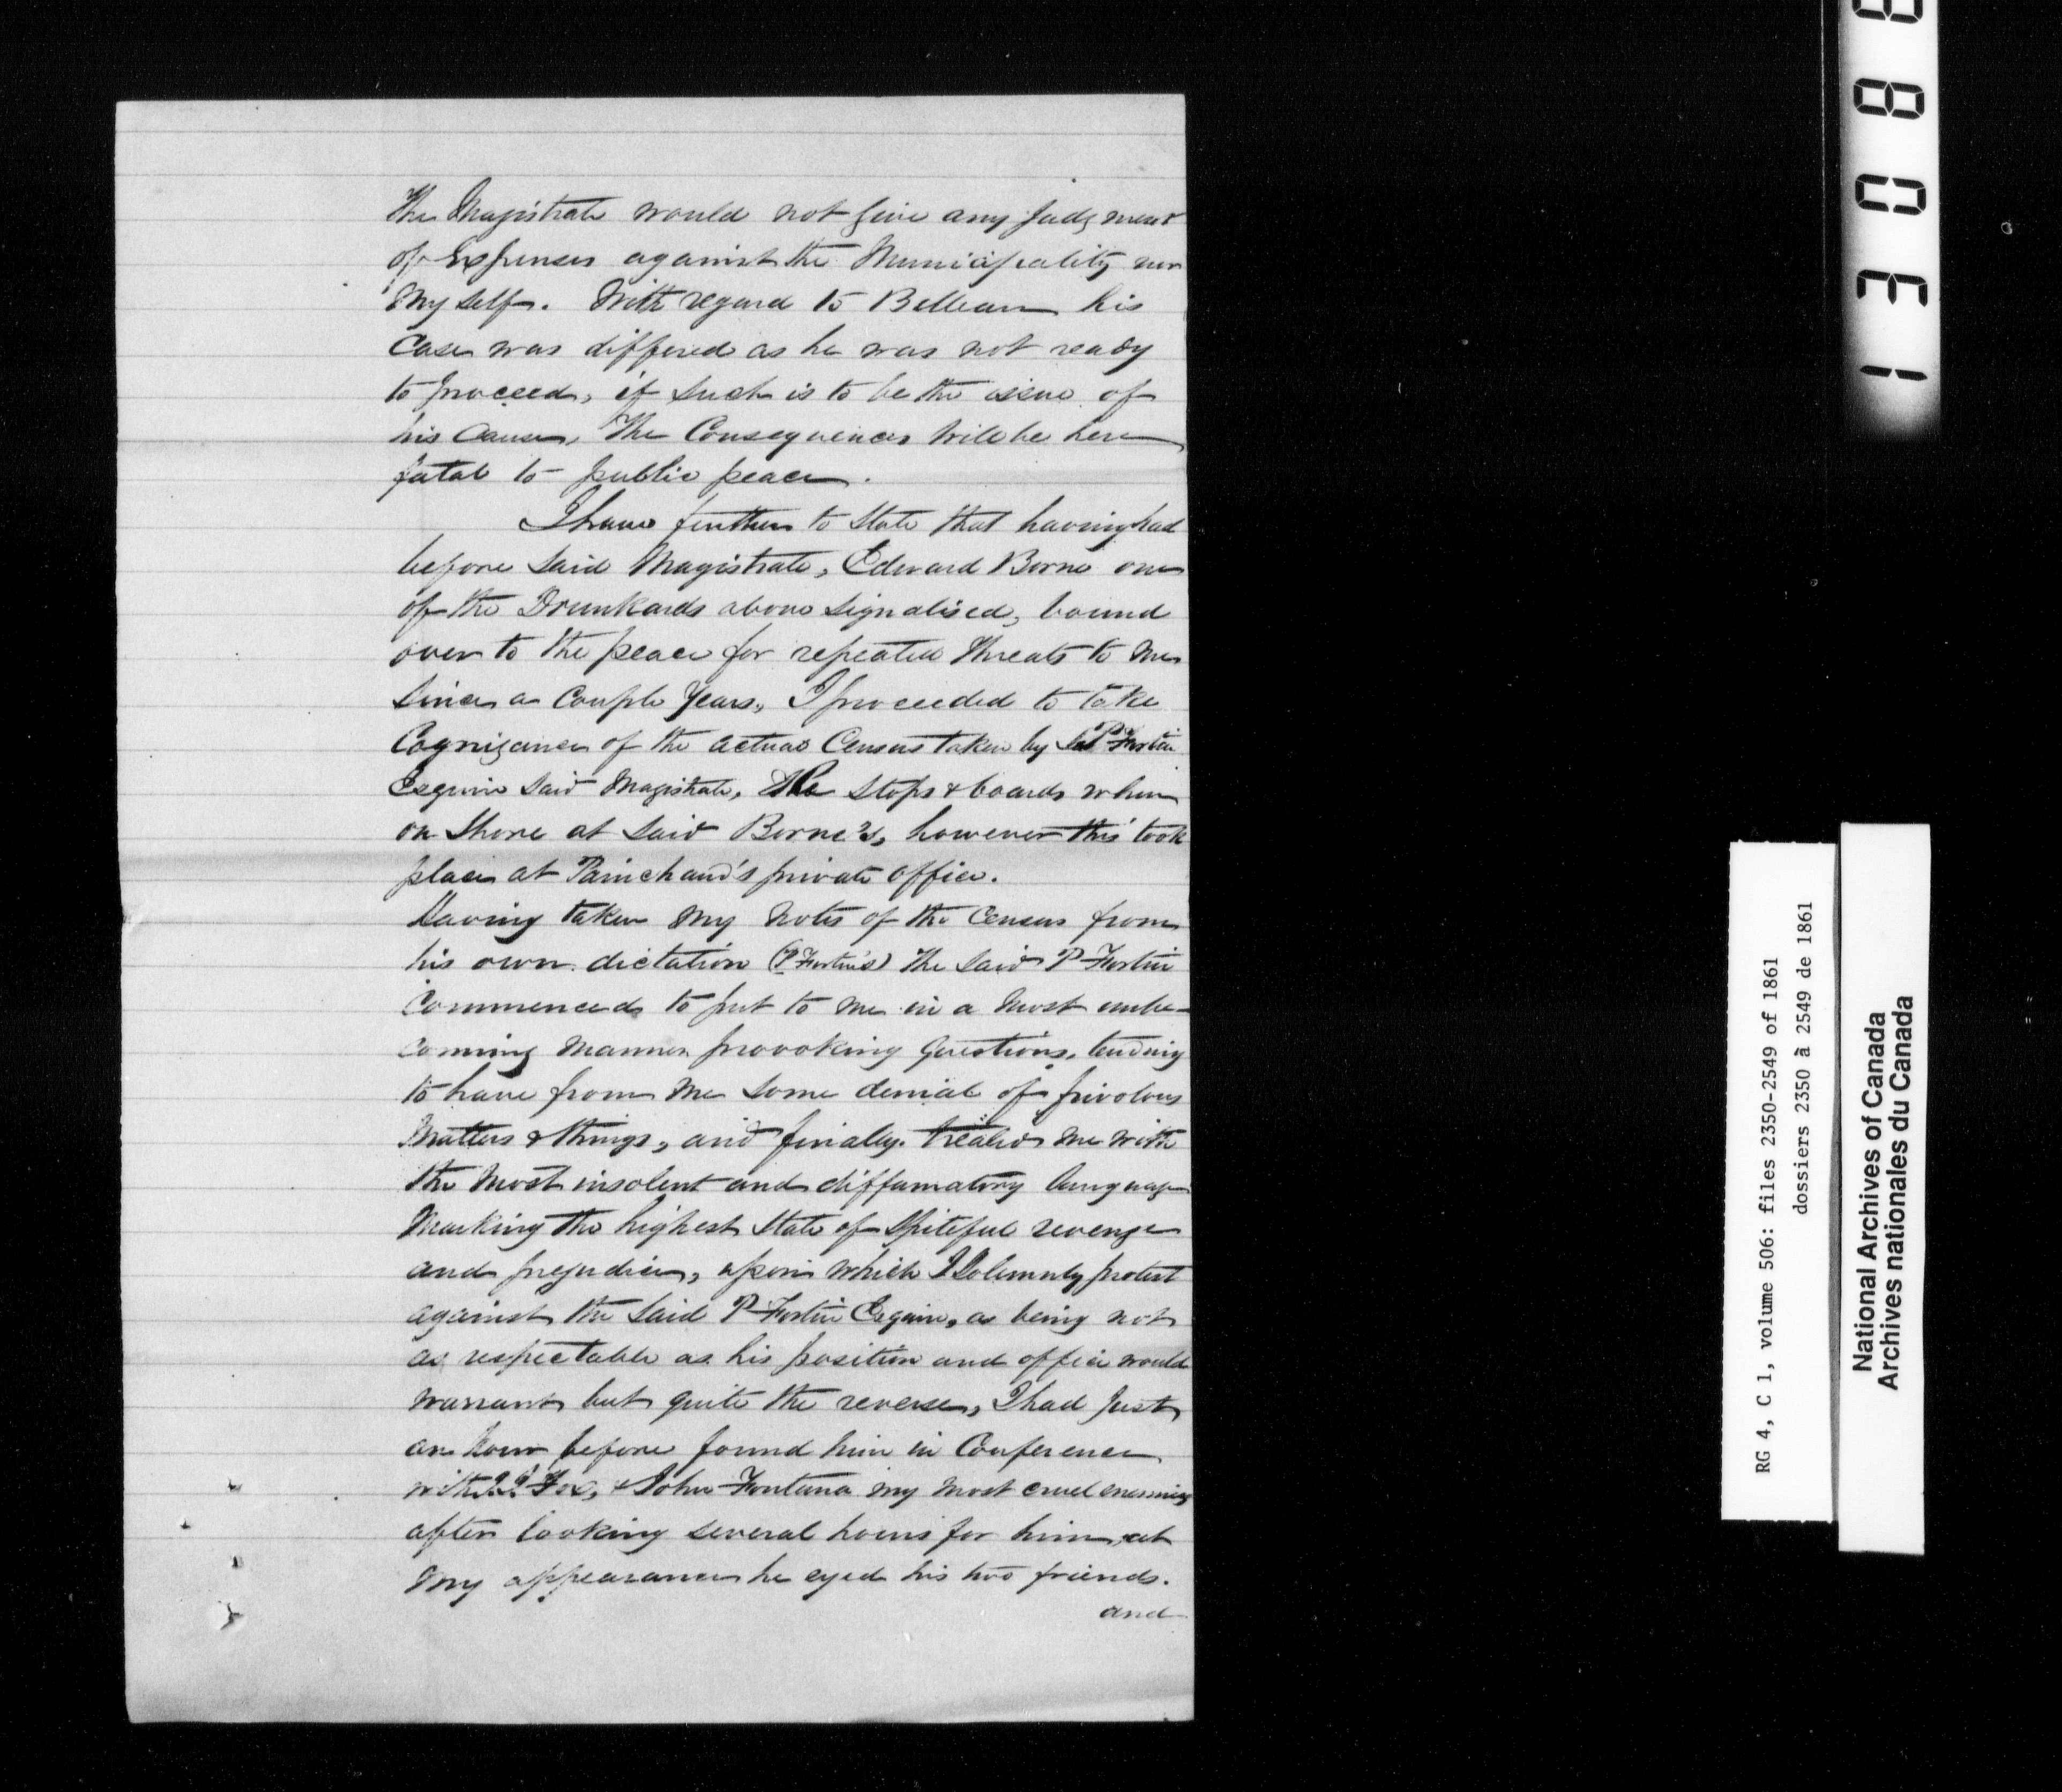 The Magistrate would not give any Judgment
of Expenses against the Municipality nor
My self. With regard to Belleau his
Case was differed as he was not ready
to proceed, if such is to be the issue of
his Cause, The Consequences will be here
fatal to public peace.
I have further to State that having had
before Said Magistrate, Edward Borne one
of the Drunkards above Signalised, bound
over to the peace for repeated threats to me
Since a Couple Years, I proceeded to take
Cognizance of the actual Census taken by P. Fortin
Esquire Said Magistrate, He stops & boards when
on Shore at Said Borne's, however this took
place at Painchaud's private office.
Having taken My Notes of the Census from
his own dictation (P Fortin's) The Said P Fortin
Commenced to put to me in a Most unbe-
coming Manner provoking questions, tending
to have from Me Some denial of frivolous
Matters & things, and finally treated me with
the Most insolent and diffamatory language
Marking the highest State of Spiteful revenge
and prejudice, upon which I Solemnly protest
against the Said P Fortin Esquire, as being not
as respectable as his position and office would
warrant but quite the reverse, I had Just
an hour before found him in Conference
with J.J. Fox, & John Fontana My Most cruel enemies
after looking several hours for him, at
My appearance he eyed his two friends.
and
1308
RG 4, C 1, volume 506: files 2350-2549 of 1861
dossiers 2350 à 2549 de 1861
National Archives of Canada
Archives nationales du Canada